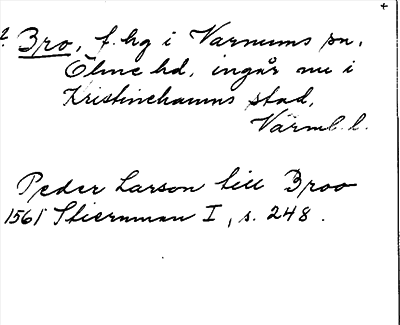 2. Bro, f. hg i Varnums sn,
Ölme hd, ingår nu i
Kristinehamns stad,
Värml. l.
Peder Larson till Broo
1561 Stiernman I, s. 248.